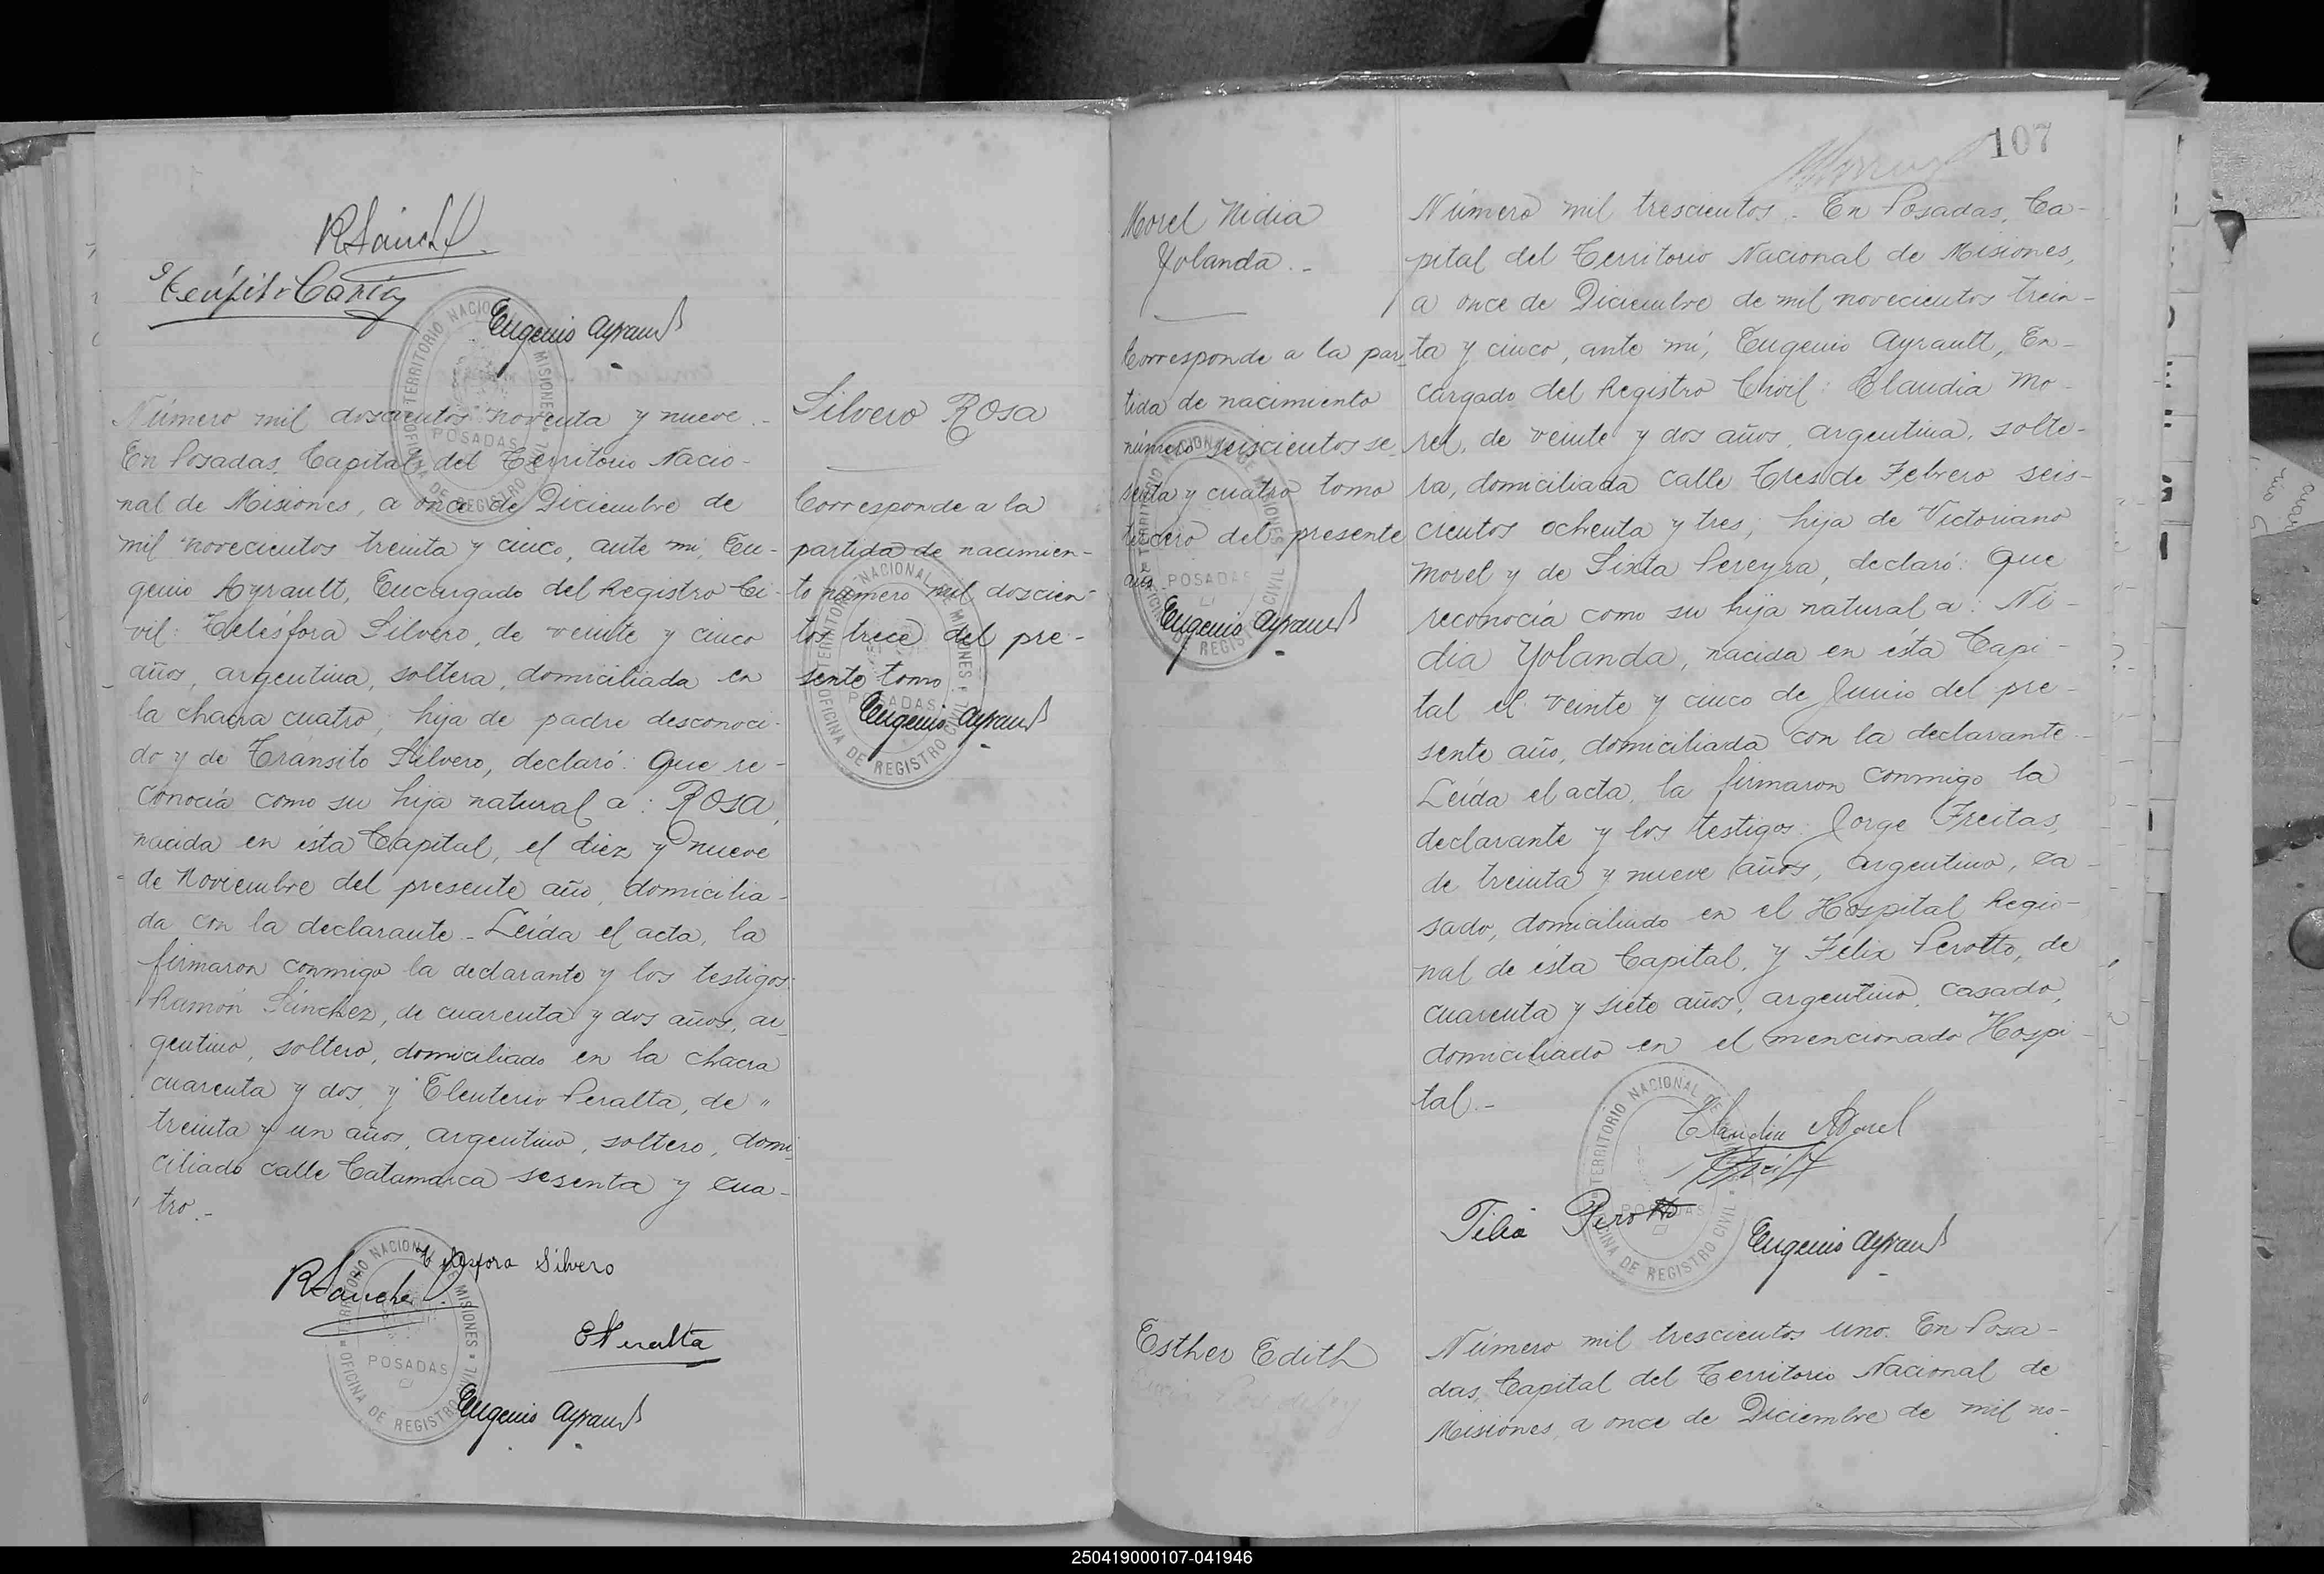 RSánchez
Eugenio Ayrault
Número mil doscientos noventa y nueve.-
En Posadas, Capital del Territorio Nacio-
nal de Misiones, a once de Diciembre de
mil novecientos treinta y cinco, ante mi, Eu-
genio Ayrault, Encargado del Registro Ci-
vil: Telésfora Silvero, de veinte y cinco
años, argentina, soltera, domiciliada en
la chacra cuatro, hija de padre desconoci-
do y de Tránsito Silvero, declaró: Que re-
conocía como su hija natural a: ROSA,
nacida en ésta Capital, el diez y nueve
de Noviembre del presente año, domicilia-
da con la declarante.- Leída el acta, la
firmaron conmigo la declarante y los testigos:
Ramón Sánchez, de cuarenta y dos años, ar-
gentino, soltero, domiciliado en la chacra
cuarenta y dos, y Eleuterio Peralta, de "
treinta y un años, argentino, soltero, domi-
ciliado calle Catamarca sesenta y cua-
tro.-
Telesfora Silvero
RSanchez
EPeralta
Eugenio Ayrault
TERRITORIO NACIONAL DE MISIONES
POSADAS
OFICINA DE REGISTRO CIVIL
Silvero ROsa
Corresponde a la
partida de nacimien-
to número mil doscien-
tos trece del pre-
sente tomo
Eugenio Ayrault
TERRITORIO NACIONAL DE MISIONES
POSADAS
OFICINA DE REGISTRO CIVIL
107
Morel Nidia
Yolanda.-
Corresponde a la par-
tida de nacimiento
número seiscientos se-
senta y cuatro tomo
tercero del presente
año
Eugenio Ayrault
POSADAS
Número mil trescientos.- En Posadas, Ca-
pital del Territorio Nacional de Misiones,
a once de Diciembre de mil novecientos trein-
ta y cinco, ante mí, Eugenio Ayrault, En-
cargado del Registro Civil: Claudia Mo-
rel, de veinte y dos años, argentina, solte-
ra, domiciliada calle Tres de Febrero seis-
cientos ochenta y tres, hija de Victoriano
Morel y de Sixta Pereyra, declaró: Que
reconocía como su hija natural a: Ni-
dia Yolanda, nacida en ésta Capi-
tal el veinte y cinco de Junio del pre-
sente año, domiciliada con la declarante.-
Leída el acta, la firmaron conmigo la
declarante y los testigos: Jorge Freitas,
de treinta y nueve años, argentino, ca-
sado, domiciliado en el Hospital Regio-
nal de ésta Capital, y Félix Perotto, de
cuarenta y siete años, argentino, casado,
domiciliado en el mencionado Hospi-
tal.-
Claudia Morel
Perotto
Eugenio Ayrault
TERRITORIO NACIONAL DE
POSADAS
OFICINA DE REGISTRO CIVIL
Esther Edith
Número mil trescientos uno. En Posa-
das, Capital del Territorio Nacional de
Misiones, a once de Diciembre de mil no-
250419000107-041946